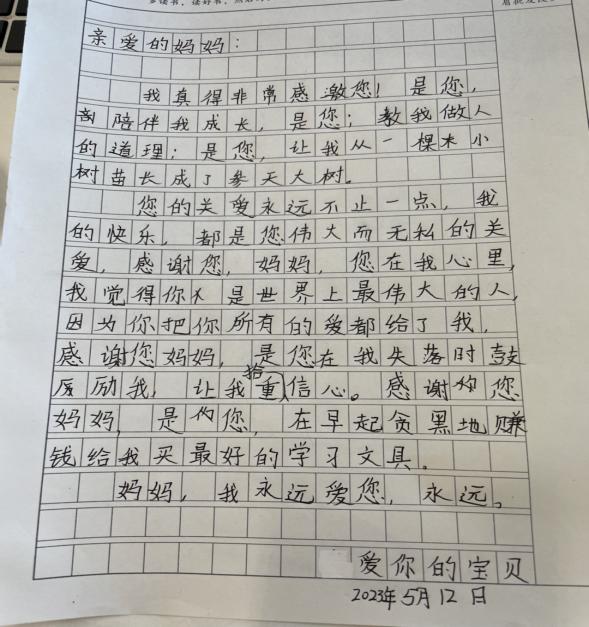 亲爱的妈妈：
我真得非常感激您！是您，
陪伴我成长，是您；教我做人
的道理；是您，让我从一棵木小
树苗长成了参天大树。
您的关爱永远不止一点，我
的快乐，都是您伟大而无私的关
爱，感谢您，妈妈，您在我心里，
我觉得你是世界上最伟大的人，
因为你把你所有的爱都给了我，
感谢您妈妈，是您在我失落时鼓
励我，让我重拾信心。感谢您
妈妈，是您，在早起贪黑地赚
钱给我买最好的学习文具。
妈妈，我永远爱您，永远。
爱你的宝贝
2023年5月12日